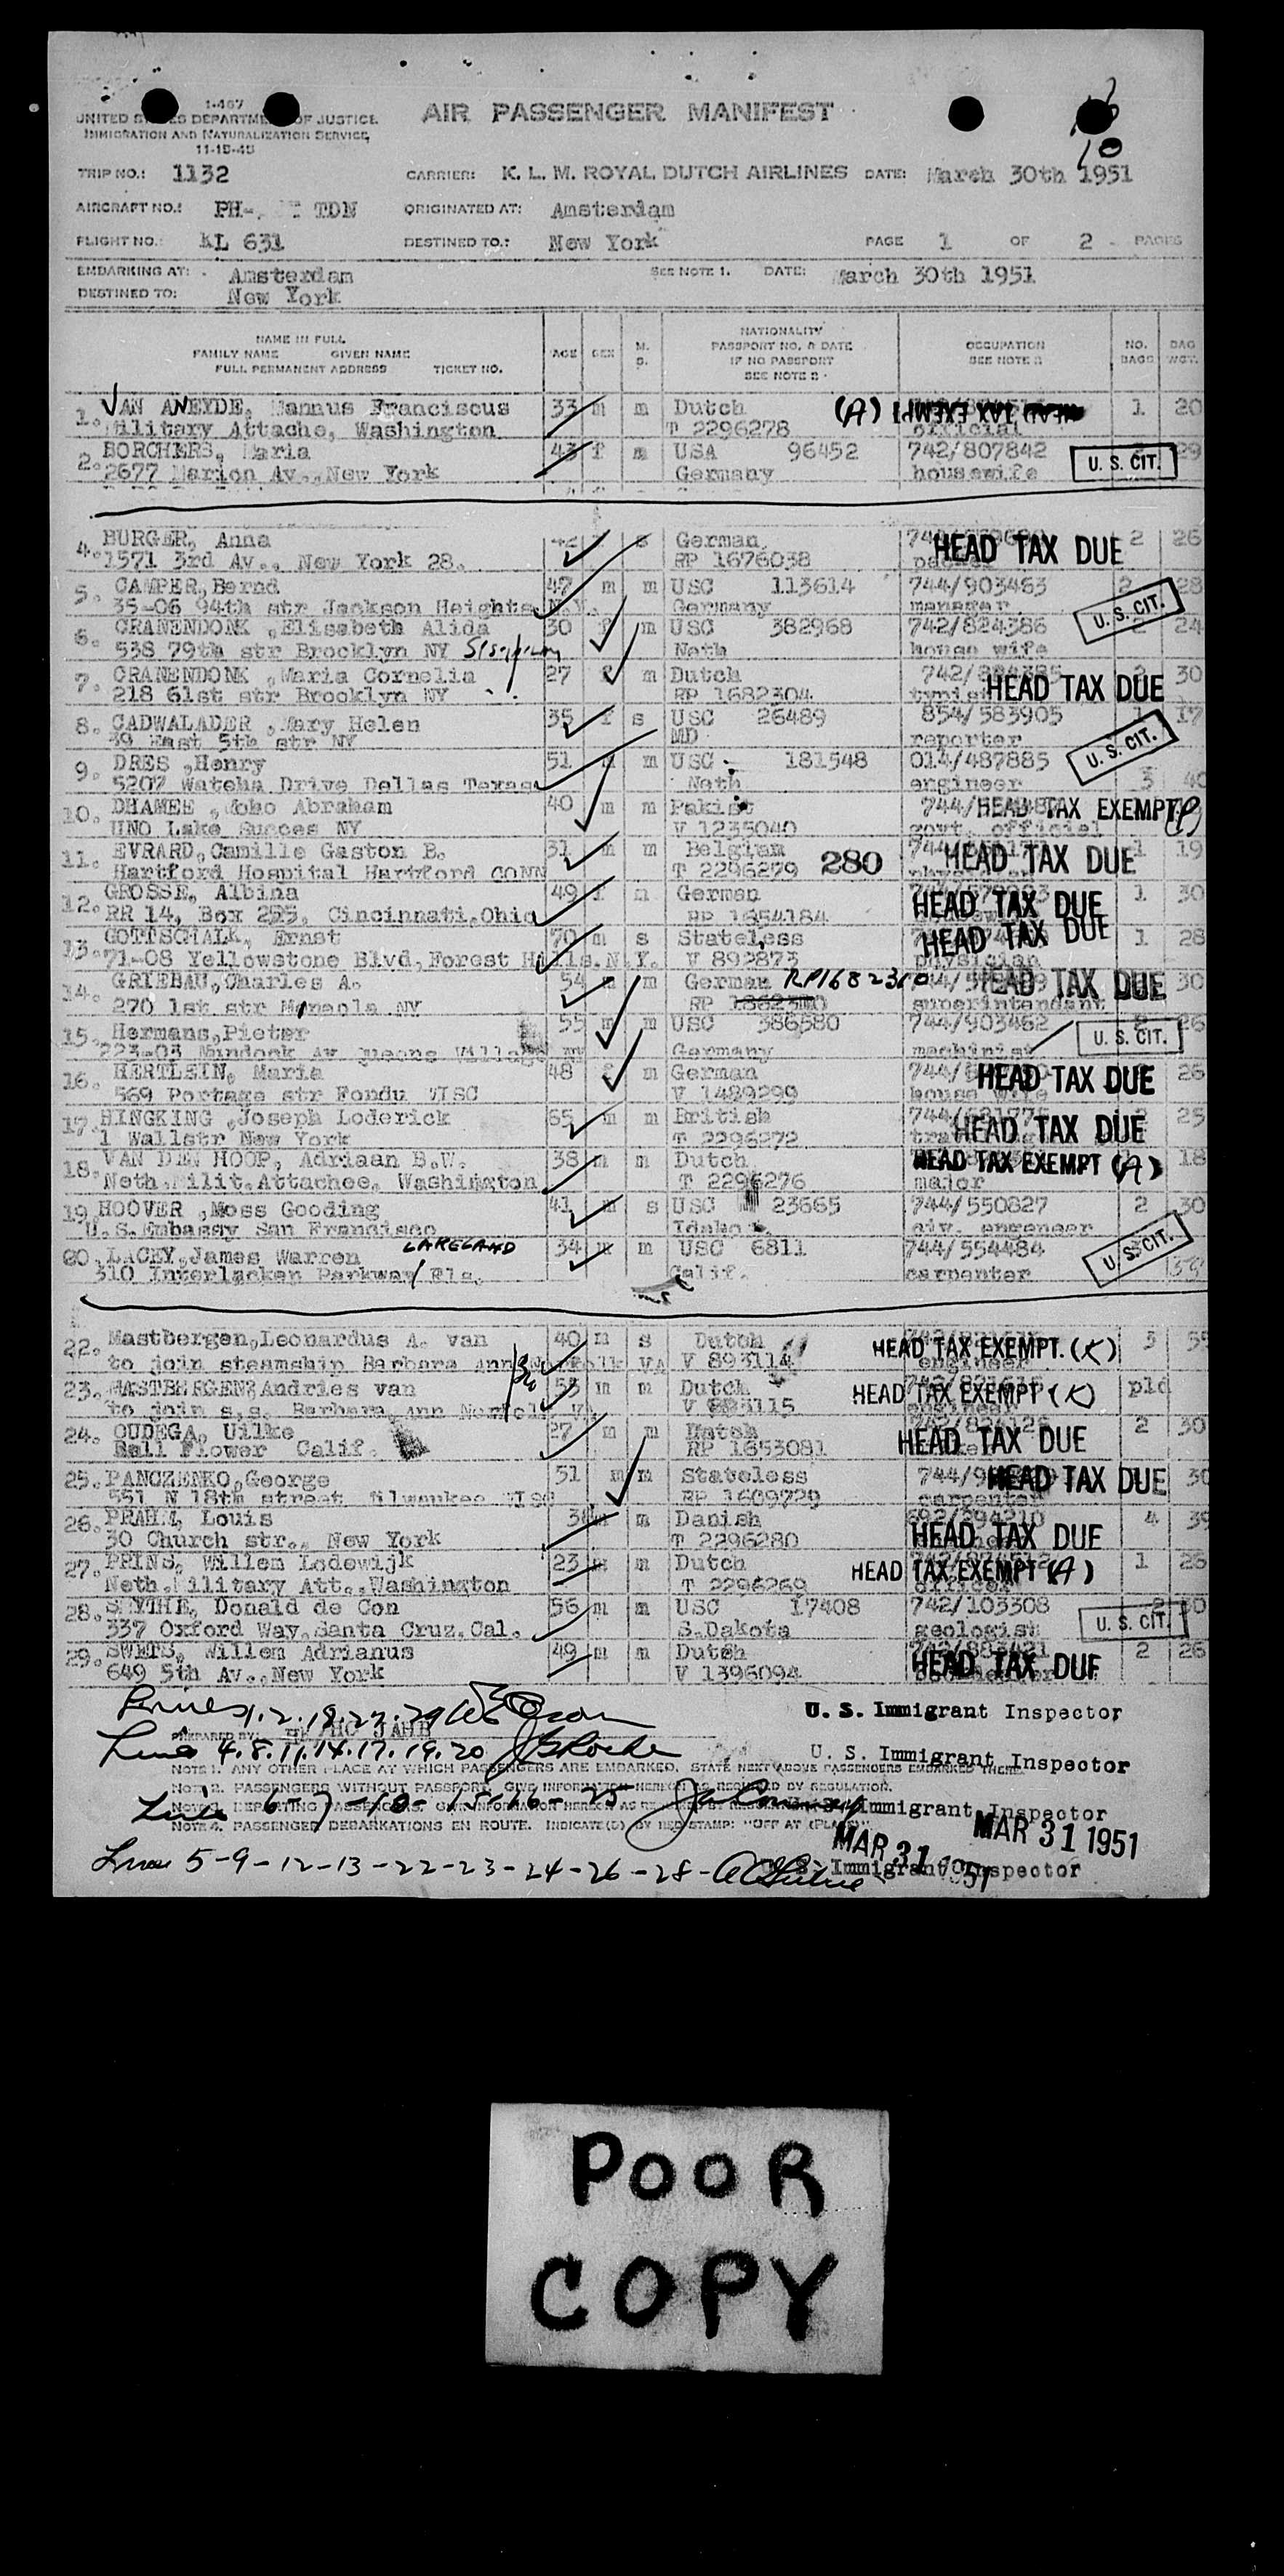 I-467
UNITED STATES DEPARTMENT OF JUSTICE
IMMIGRATION AND NATURALIZATION SERVICE
11-15-45
AIR PASSENGER MANIFEST
10
TRIP NO.: 1132 CARRIER: K. L. M. ROYAL DUTCH AIRLINES DATE: March 30th 1951
AIRCRAFT NO.: PH- TDN ORIGINATED AT: Amsterdam
FLIGHT NO.: KL 631 DESTINED TO.: New York PAGE 1 OF 2 PAGES
EMBARKING AT: Amsterdam SEE NOTE 1. DATE: March 30th 1951
DESTINED TO: New York
NAME IN FULL
FAMILY NAME GIVEN NAME
FULL PERMANENT ADDRESS TICKET NO.
AGE SEX M. S.
NATIONALITY
PASSPORT NO. & DATE
IF NO PASSPORT
SEE NOTE 2
OCCUPATION
SEE NOTE 3
NO. BAGS
BAG WGT.
1. VAN ANEYDE, Mannus Franciscus 33 m m Dutch (A) HEAD TAX EXEMPT 1 20
Military Attache, Washington T 2296278 official
2. BORCHERS, Maria 43 f m USA 96452 742/807842 29
2677 Marion Av., New York Germany housewife U. S. CIT.
4. BURGER, Anna s German HEAD TAX DUE 2 26
1571 3rd Av., New York 28. RP 1676038
5. CAMPER, Bernd 47 m m USC 113614 744/903463 2 28
35-06 94th str Jackson Heights N.Y. Germany manager U. S. CIT.
6. CRANENDONK, Elisabeth Alida 30 f m USC 382968 742/824386 2 24
538 79th str Brocklyn NY Neth house wife
7. CRANENDONK, Maria Cornelia 27 f m Dutch HEAD TAX DUE 30
218 61st str Brocklyn NY RP 1682304
8. CADWALADER, Mary Helen 35 f s USC 26489 854/583905 1 17
39 East 5th str NY MD reporter U. S. CIT.
9. DRES, Henry 51 m m USC 181548 014/487885 3 40
5207 Watcha Drive Dallas Texas Neth engineer
10. DHAMEE, Abraham 40 m m Pakist HEAD TAX EXEMPT
UNO Lake Succes NY V 1235040 govt. official
11. EVRARD, Camille Gaston B. 31 m m Belgium HEAD TAX DUE 1 19
Hartford Hospital Hartford CONN T 2296279 280
12. GROSSE, Albina 49 f m German HEAD TAX DUE 1 30
RR 14, Box 255, Cincinnati, Ohio RP 1654184
13. GOTTSCHALK, Ernst 70 m s Stateless HEAD TAX DUE 1 28
71-08 Yellowstone Blvd, Forest Hills, N.Y. V 892873 physician
14. GRIEBAU, Charles A. 54 m m German RP1682310 HEAD TAX DUE 30
270 1st str Mineola NY RP superintendant
15. Hermans, Pieter 55 m m USC 386580 744/903462 26
223-03 Murdock Av Queens Village NY Germany machinist U. S. CIT.
16. HERTLEIN, Maria 48 f m German HEAD TAX DUE 26
569 Portage str Fondu WISC V 1489299 house wife
17. HINGKING, Joseph Loderick 65 m m British HEAD TAX DUE 25
1 Wallstr New York T 2296272
18. VAN DEN HOOP, Adriaan B.W. 38 m m Dutch HEAD TAX EXEMPT (A) 18
Neth. Milit. Attachee, Washington T 2296276 major
19. HOOVER, Moss Gooding 41 m s USC 23665 744/550827 2 30
U.S. Embassy San Francisco Idaho civ. engeneer
20. LACEY, James Warren LAKELAND 34 m m USC 6811 744/554484
310 Interlacken Parkway Fla. Calif. carpenter U. S. CIT.
22. Mastbergen, Leonardus A. van 40 m s Dutch HEAD TAX EXEMPT. (K) 3 55
to join steamship Barbara Ann Norfolk VA V 893114 engineer
23. MASTBERGEN, Andries van 53 m m Dutch HEAD TAX EXEMPT (K) pld
to join s.s. Barbara Ann Norfolk
24. OUDEGA, Uilke 27 m m Dutch HEAD TAX DUE 2 30
Bell Flower Calif. RP 1653081
25. PANCZENKO, George 51 m m Stateless HEAD TAX DUE 30
551 N 18th street Milwaukee WISC RP 1609729 carpenter
26. PRAHM, Louis m m Danish HEAD TAX DUE 4 39
30 Church str., New York T 2296280
27. PRINS, Willem Lodewijk 23 m m Dutch HEAD TAX EXEMPT (A) 1 26
Neth. Military Att., Washington T 2296269 officer
28. SMYTHE, Donald de Con 56 m m USC 17408 742/103308 30
337 Oxford Way, Santa Cruz, Cal. S.Dakota geologist U. S. CIT.
29. SWETS, Willem Adrianus 49 m m Dutch HEAD TAX DUE 2 26
649 5th Av., New York V 1396094
Lines 1.2.18.27.29 U. S. Immigrant Inspector
PREPARED BY:
Lines 4.8.11.14.17.19.20 U. S. Immigrant Inspector
NOTE 1. ANY OTHER PLACE AT WHICH PASSENGERS ARE EMBARKED, STATE NEXT ABOVE PASSENGERS EMBARKED THERE.
NOTE 2. PASSENGERS WITHOUT PASSPORT, GIVE INFORMATION HEREON AS REQUIRED BY REGULATION.
Lines 6-7-10-15-16-25 Immigrant Inspector
NOTE 4. PASSENGER DEBARKATIONS EN ROUTE. INDICATE (D) BY RED STAMP: "OFF AT (PLACE)"
MAR 31 1951
MAR 31 1951
Lines 5-9-12-13-22-23-24-26-28- U. S. Immigrant Inspector
POOR
COPY